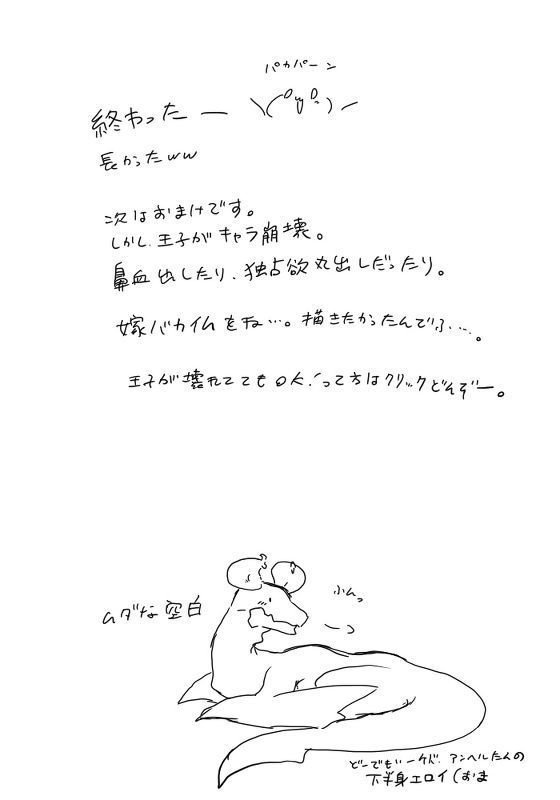 パカパーン
終わったー \(^o^)/
長かったww
次はおまけです。
しかし、王子がキャラ崩壊。
鼻血出したり、独占欲丸出しだったり。
嫁バカイムをね…。描きたかったんでふ…。
王子が壊れててもOK!って方はクリックどんぞー。
ムダな空白
ふんっ
どーでもいーけど、アンヘルたんの
下半身エロイ(おま